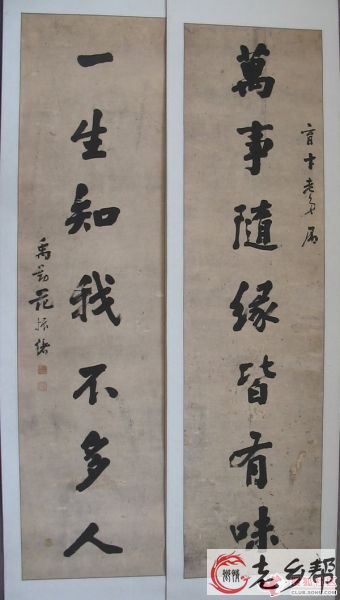 育才老弟属
萬事隨緣皆有味
一生知我不多人
禹勤范振緒
老乡帮
CLUB.SOHU.COM